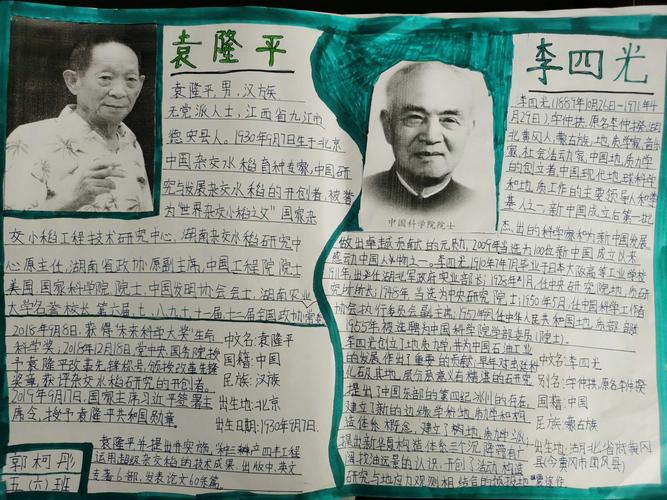 袁隆平
袁隆平,男,汉族
无党派人士,江西省九江市
德安县人。1930年9月7日生于北京
中国杂交水稻育种专家,中国研
究与发展杂交水稻的开创者,被誉
为"世界杂交水稻之父"国家杂
交水稻工程技术研究中心、湖南杂交水稻研究中
心原主任,湖南省政协原副主席,中国工程院院士
美国国家科学院院士,中国发明协会会士,湖南农业
大学名誉校长,第六届七、八九十十一届十二届全国政协常委
2018年9月8日,获得"未来科学大奖"生命
科学奖;2018年12月18日,党中央、国务院授
予袁隆平改革先锋称号,颁授改革先锋
奖章,获评杂交水稻研究的开创者。
2019年9月17日,国家主席习近平签署主
席令,授予袁隆平共和国勋章。
中文名:袁隆平
国籍:中国
民族:汉族
出生地:北京
出生日期:1930年9月7日
袁隆平并提出并实施"种三产四丰工程
运用超级杂交稻的技术成果,出版中、英文
专著6部,发表论文60余篇
郭柯彤
五(六)班
李四光
李四光(1889年10月26日-1971年4
月29日)字仲拱,原名李仲揆,湖
北黄冈人,蒙古族,地质学家、音
家、社会活动家,中国地质力学
的创立者、中国现代地球科学
和地质工作的主要领导人和奠
基人之一,新中国成立后第一批
杰出的科学家和为新中国发展
中国科学院院士
做出卓越贡献的元勋,2009年当选为100位新中国成立以来
感动中国人物之一。李四光,1910年7月毕业于日本大阪高等工业学校
1911年,出任湖北军政府实业部部长;1928年1月,任中央研究院地质研
究所所长;1948年当选为中央研究院院士;1950年5月,任中国科学工作者
协会执行委员会副主席;1952年,任中华人民共和国地质部部长
1955年被选聘为中国科学院学部委员(院士)。
李四光创立了地质力学,并为中国石油工业
的发展作出了重要的贡献,早年对
化石及其地层分类意义有精湛的研究
提出了中国东部的第四纪冰川的存在,
建立了新的边缘学科地质力学和构
造体系概念,
提出新华夏构造体系三个沉降带有广
阔找油远景的认识,开创了活动构造
研究与地应力观测相结合的预报地震途径
中文名:李四光
别名:字仲拱,原名李仲揆
国籍:中国
民族:蒙古族
出生地:湖北省府黄冈
县(今黄冈市团风县)